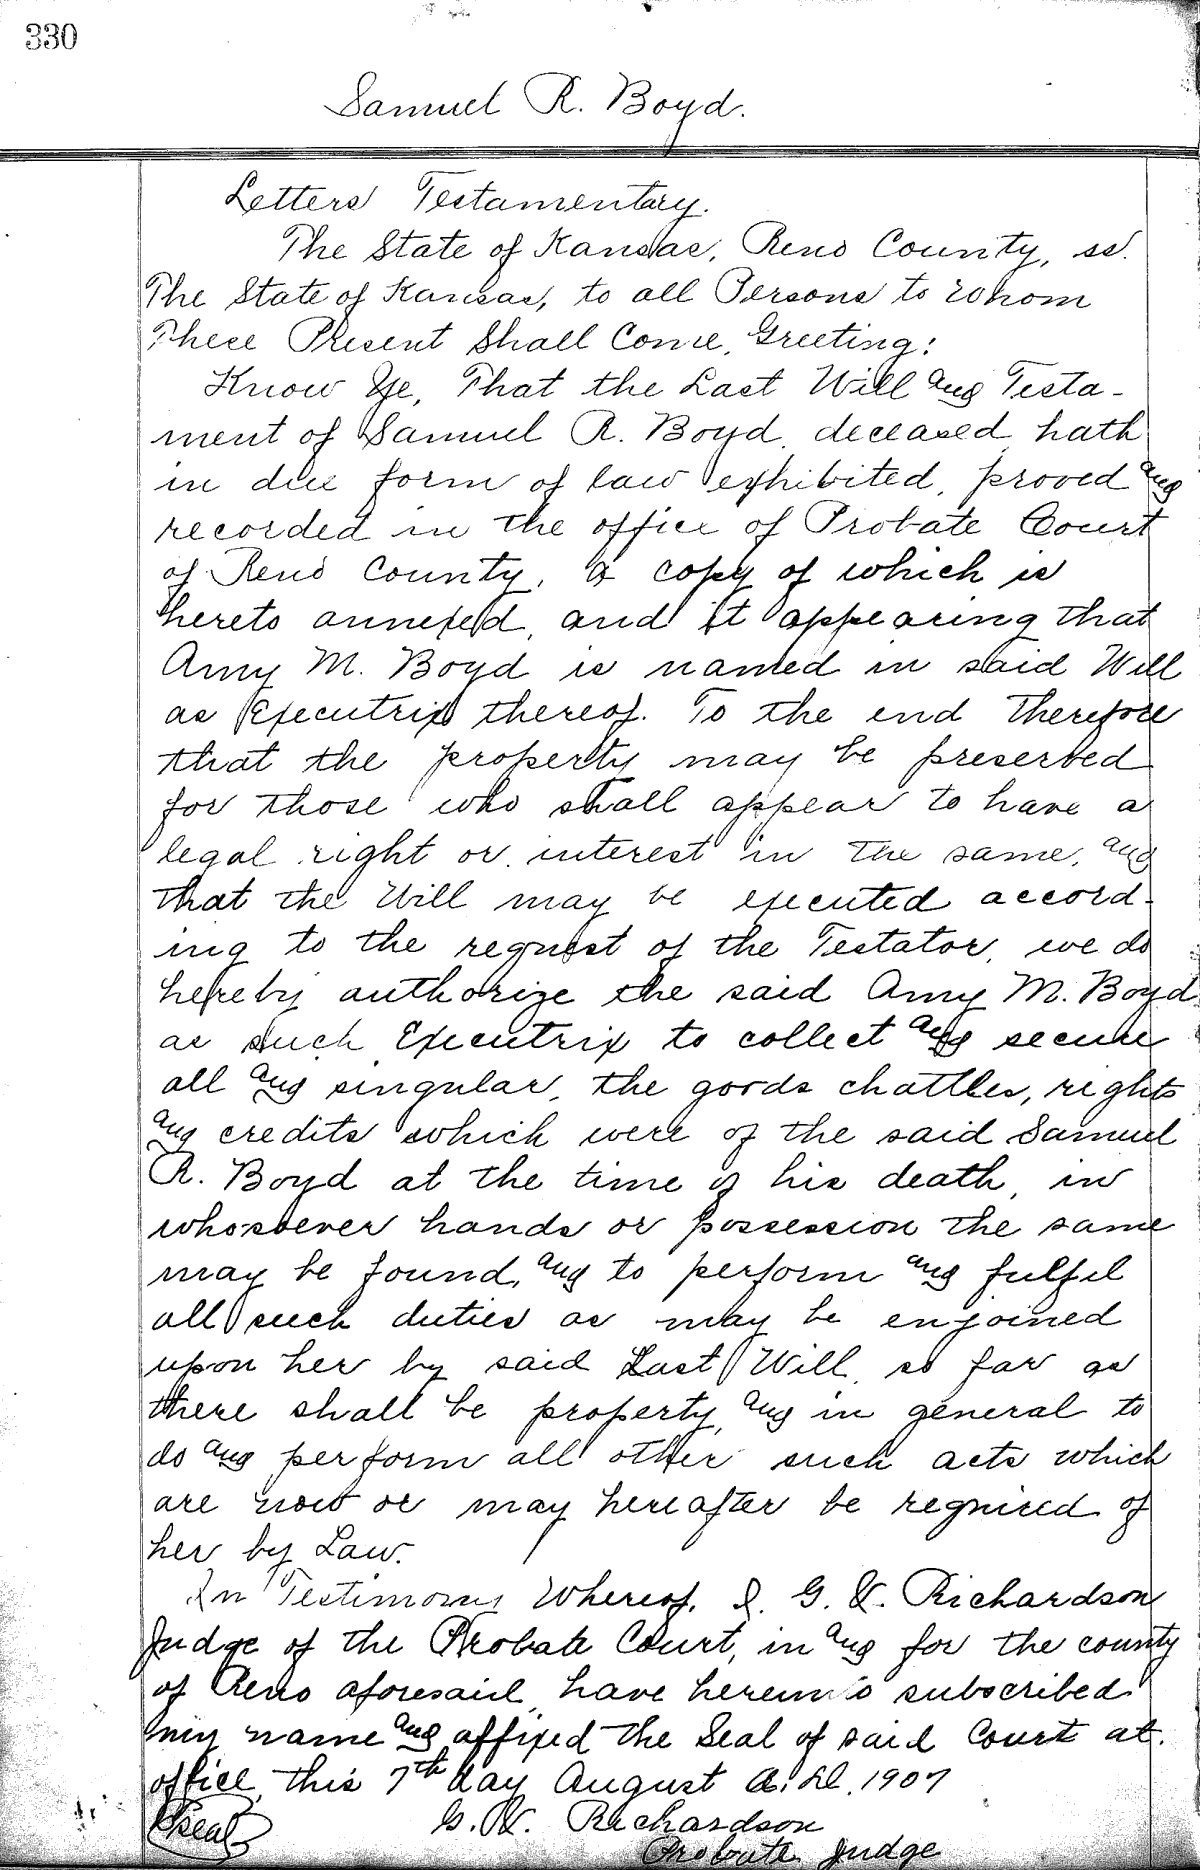 330
Samuel R. Boyd.
Letters Testamentary.
The State of Kansas, Reno County, ss.
The State of Kansas, to all Persons to whom
These Present Shall Come, Greeting:
Know Ye, That the Last Will and Testa-
ment of Samuel R. Boyd, deceased, hath
in due form of law exhibited, proved and
recorded in the office of Probate Court
of Reno County, a copy of which is
hereto annexed, and it appearing that
Amy M. Boyd is named in said Will
as Executrix thereof. To the end Therefore
that the property may be preserved
for those who shall appear to have a
legal right or interest in the same, and
that the Will may be executed accord-
ing to the request of the Testator, we do
hereby authorize the said Amy M. Boyd
as such Executrix to collect and secure
all and singular, the goods chattles, rights
and credits which were of the said Samuel
R. Boyd at the time of his death, in
whosoever hands or possession the same
may be found, and to perform and fulfil
all such duties as may be enjoined
upon her by said Last Will, so far as
there shall be property, and in general to
do and perform all other such acts which
are now or may hereafter be required of
her by Law.
In Testimony Whereof, I. G. Richardson
Judge of the Probate Court, in and for the county
of Reno aforesaid, have hereunto subscribed
my name and affixed the Seal of said Court at
office, this 7th day August A.D. 1907
Seal G. Richardson
Probate Judge